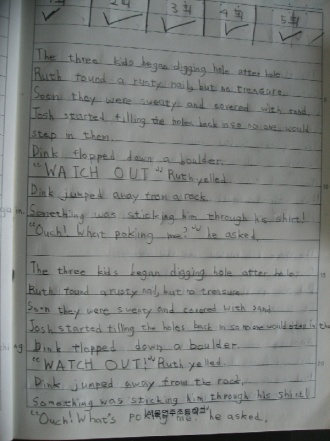 1회 2회 3회 4회 5회
The three kids began digging hole after hole.
Ruth found a rusty nail, but no treasure.
Soon they were sweaty and covered with sand.
Josh started filling the holes back in so no one would
step in them.
Dink flopped down a boulder.
"WATCH OUT!" Ruth yelled.
Dink jumped away from a rock.
Something was sticking him through his shirt!
"Ouch! What poking me?" he asked.
The three kids began digging hole after hole.
Ruth found a rusty nail, but no treasure.
Soon they were sweaty and covered with sand
Josh started filling the holes back in so no one would step in the
Dink flopped down a boulder.
"WATCH OUT!" Ruth yelled.
Dink jumped away from the rock.
Something was sticking him through his shirt!
"Ouch! What's poking me." he asked.